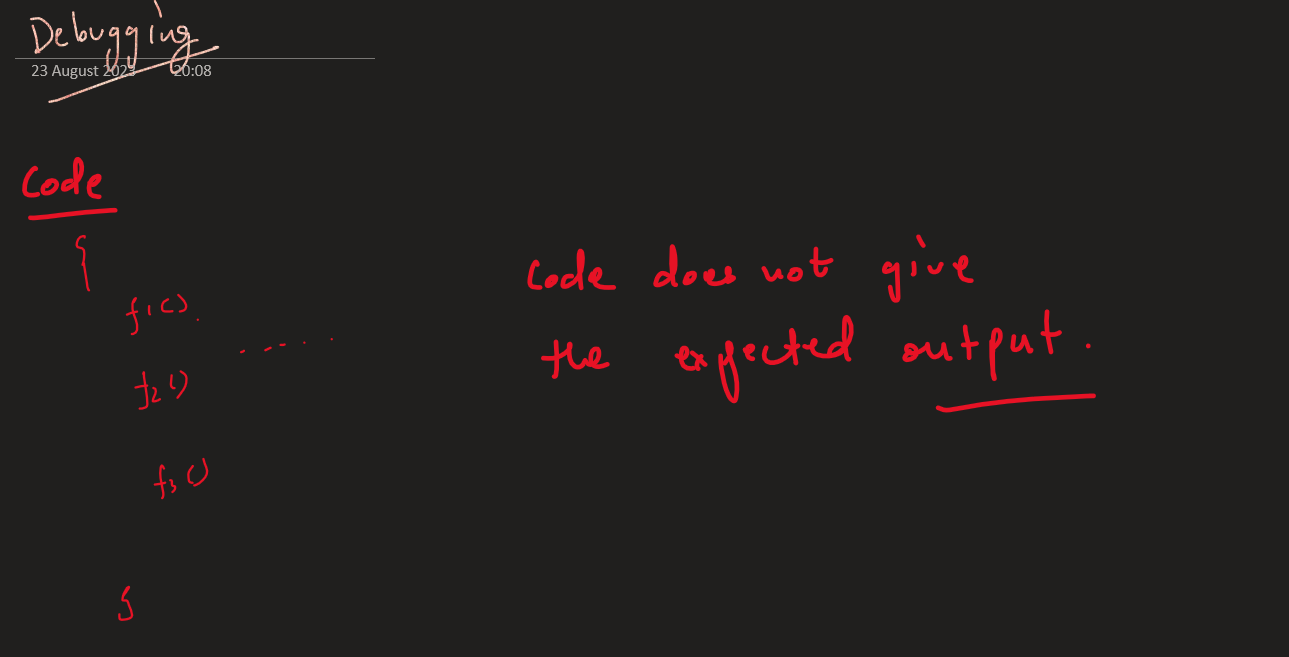 Debugging
23 August 2023 20:08
Code
{
f1().
.....
f2()
f3()
}
Code does not give
the expected output.